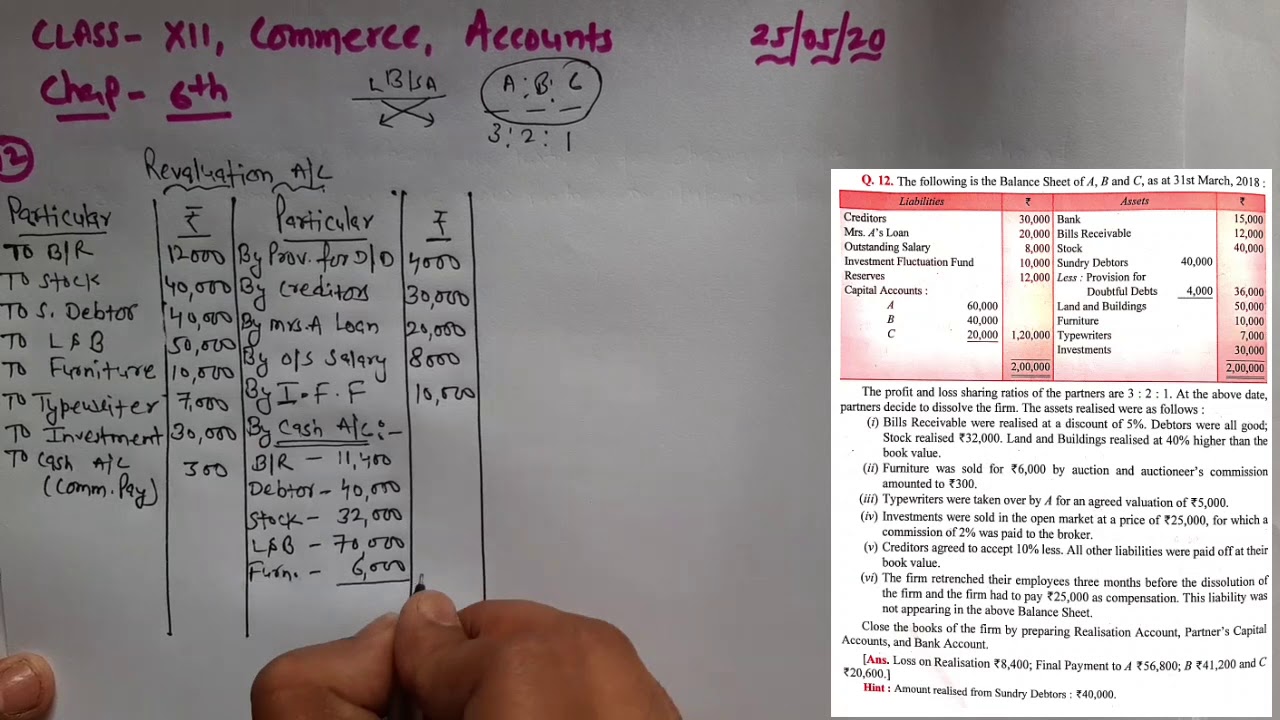 CLASS- XII, Commerce, Accounts
25/05/20
Chap- 6th
LB/SA
A : B : C
3 : 2 : 1
Revaluation A/C
Particular ₹ Particular ₹
To B/R 12000 By Prov. for D/D 4000
To Stock 40,000 By Creditors 30,000
To S. Debtor 40,000 By Mrs. A Loan 20,000
To L&B 50,000 By O/S Salary 8000
To Furniture 10,000 By I.F.F 10,000
To Typewriter 7,000 By Cash A/C:-
To Investment 30,000 B/R - 11,400
To Cash A/C 300 Debtor - 40,000
(Comm. Pay) Stock - 32,000
L&B - 70,000
Furn. - 6,000
Q. 12. The following is the Balance Sheet of A, B and C, as at 31st March, 2018 :
Liabilities ₹ Assets ₹
Creditors 30,000 Bank 15,000
Mrs. A's Loan 20,000 Bills Receivable 12,000
Outstanding Salary 8,000 Stock 40,000
Investment Fluctuation Fund 10,000 Sundry Debtors 40,000
Reserves 12,000 Less : Provision for
Capital Accounts : Doubtful Debts 4,000 36,000
A 60,000 Land and Buildings 50,000
B 40,000 Furniture 10,000
C 20,000 1,20,000 Typewriters 7,000
Investments 30,000
2,00,000 2,00,000
The profit and loss sharing ratios of the partners are 3 : 2 : 1. At the above date,
partners decide to dissolve the firm. The assets realised were as follows :
(i) Bills Receivable were realised at a discount of 5%. Debtors were all good;
Stock realised ₹32,000. Land and Buildings realised at 40% higher than the
book value.
(ii) Furniture was sold for ₹6,000 by auction and auctioneer's commission
amounted to ₹300.
(iii) Typewriters were taken over by A for an agreed valuation of ₹5,000.
(iv) Investments were sold in the open market at a price of ₹25,000, for which a
commission of 2% was paid to the broker.
(v) Creditors agreed to accept 10% less. All other liabilities were paid off at their
book value.
(vi) The firm retrenched their employees three months before the dissolution of
the firm and the firm had to pay ₹25,000 as compensation. This liability was
not appearing in the above Balance Sheet.
Close the books of the firm by preparing Realisation Account, Partner's Capital
Accounts, and Bank Account.
[Ans. Loss on Realisation ₹8,400; Final Payment to A ₹56,800; B ₹41,200 and C
₹20,600.]
Hint : Amount realised from Sundry Debtors : ₹40,000.